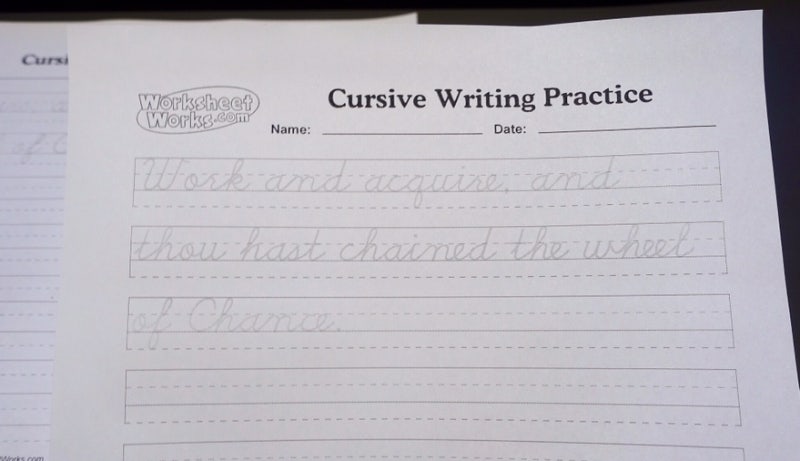 Cursi
of C
Works.com
Worksheet
Works.com
Cursive Writing Practice
Name: Date:
Work and acquire, and
thou hast chained the wheel
of Chance.